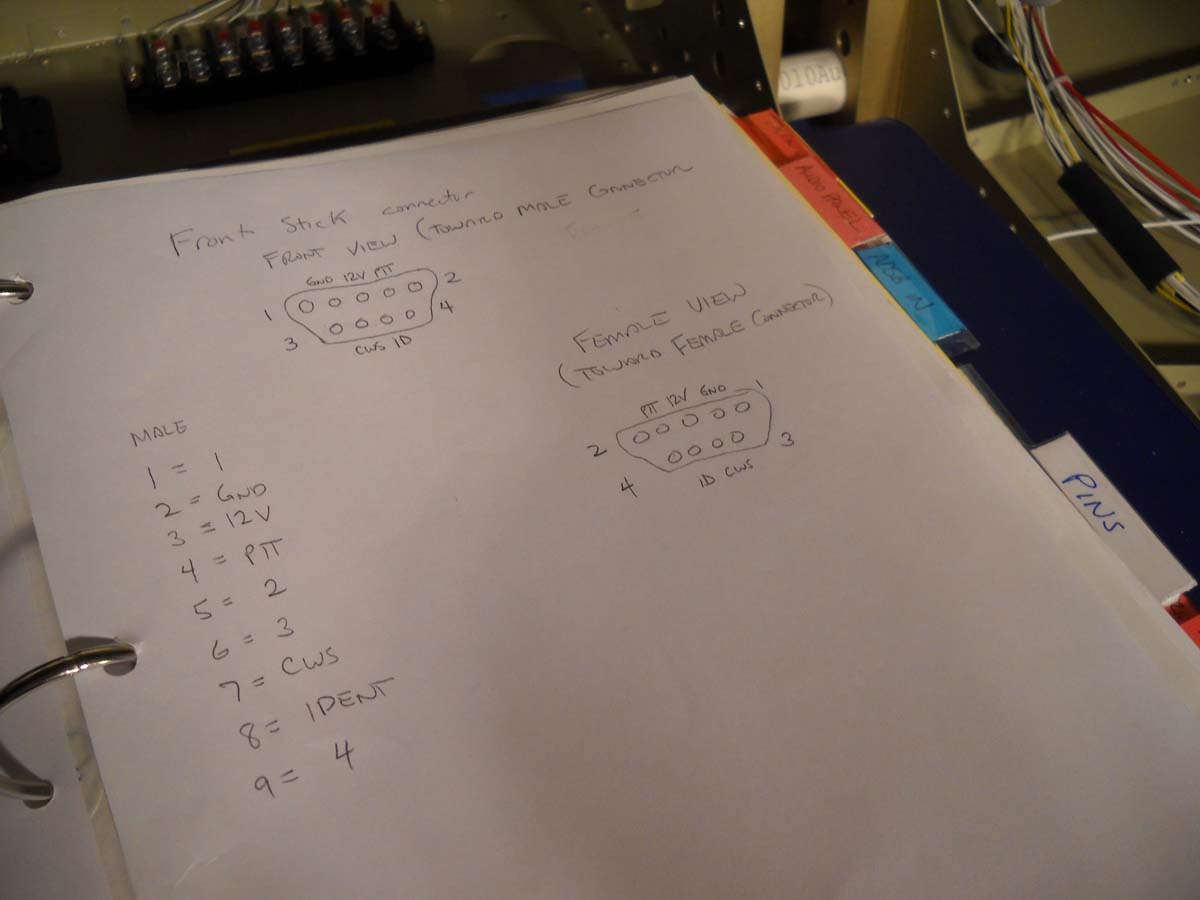 Front Stick connector
FRONT VIEW (TOWARD MALE CONNECTOR
GND 12V PTT
1
2
3
4
CWS ID
FEMALE VIEW
(TOWARD FEMALE CONNECTOR)
PTT 12V GND
1
2
3
4
ID CWS
MALE
1 = 1
2 = GND
3 = 12V
4 = PTT
5 = 2
6 = 3
7 = CWS
8 = IDENT
9 = 4
AUDIO PANEL
ADSB IN
PINS